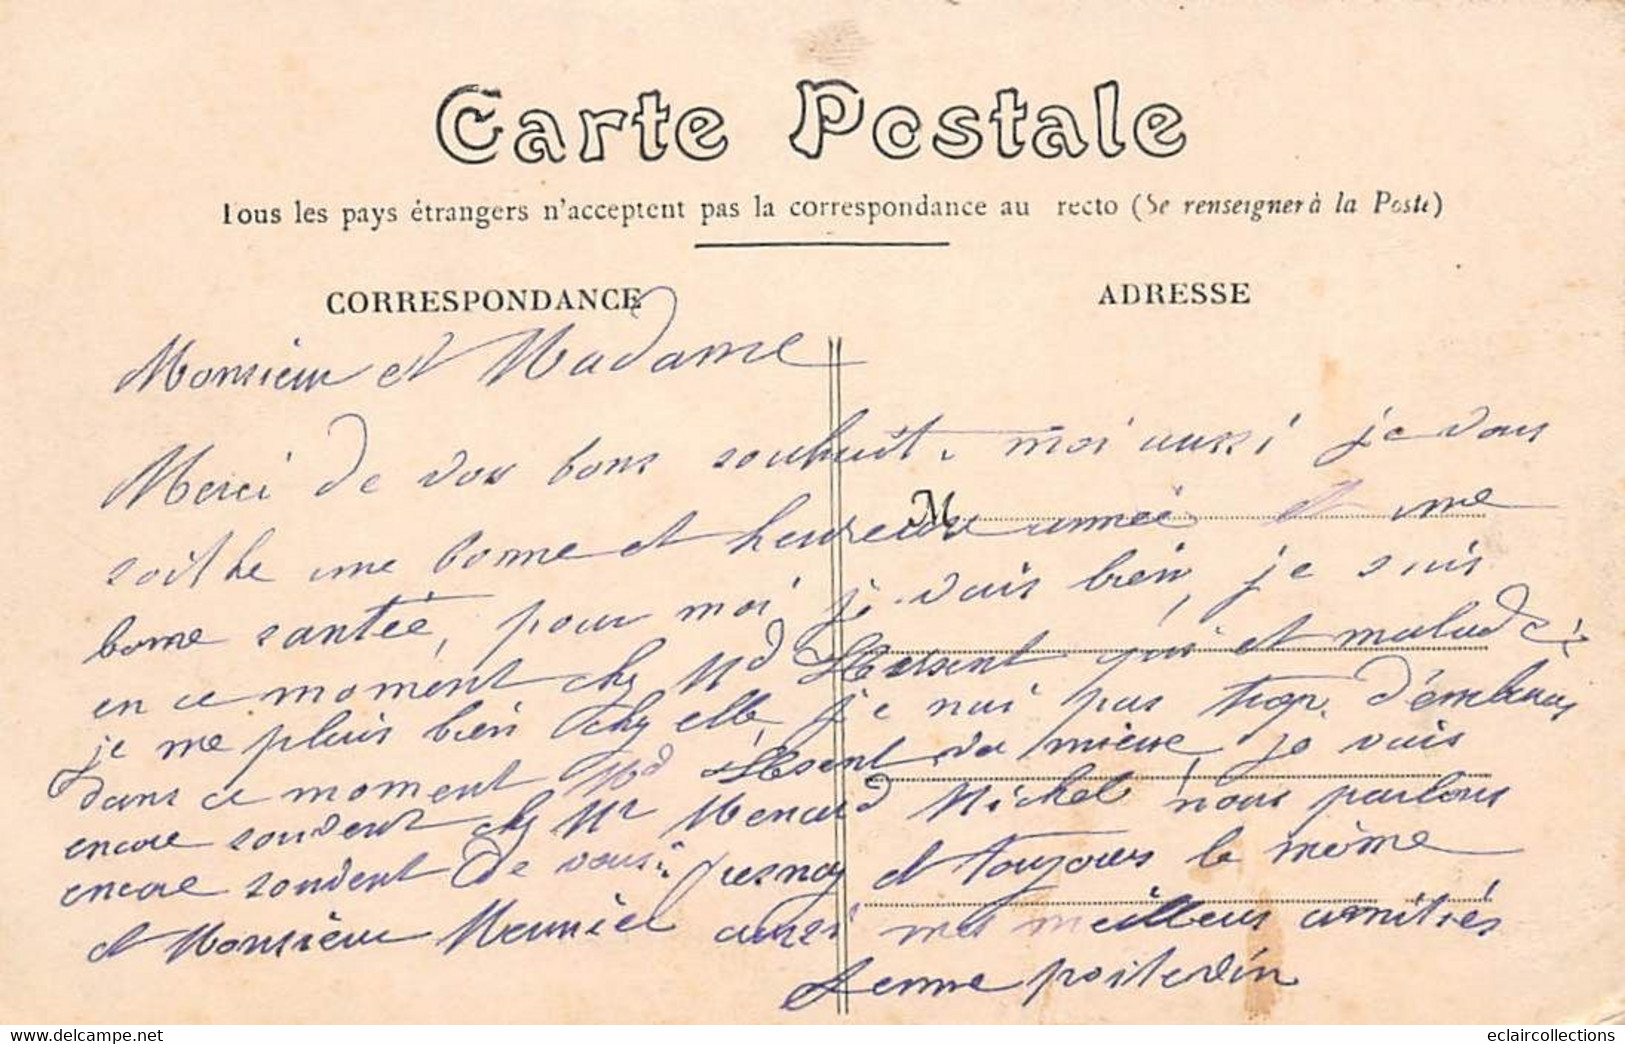 Carte Postale
Tous les pays étrangers n'acceptent pas la correspondance au recto (Se renseigner à la Poste)
CORRESPONDANCE
ADRESSE
Monsieur et Madame
Merci de vos bons souhait. moi aussi je vous
M
soithe une bonne et heureuse année et une
bonne santée, pour moi je vais bien, je suis
en ce moment chez Md Hersent qui et malade.
je me plais bien chez elle, je nai pas trop d'
dans ce moment Md Hersent va mieux, je vais
encore souvent chez Mr Menard Michel nous parlons
encore souvent de vous. et toujours le même
et Monsieur Meuniel aussi mes meilleurs amitiés
Femme poitevin
www.delcampe.net
eclaircollections